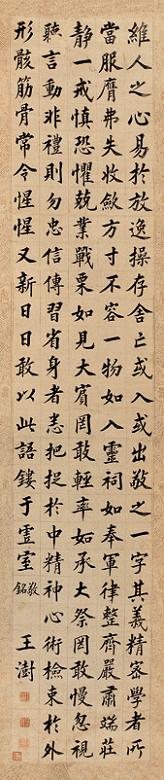 維人之心易於放逸操存舍亡或入或出敬之一字其義精深學者所
當服膺弗失收斂方寸不容一物如入靈祠如奉軍律整齊嚴肅端莊
静一戒慎恐懼兢業戰栗如見大賓罔敢輕率如承大祭罔敢慢忽視
聽言動非禮則勿忠信傳習省身者悉把捉於中精神心術檢束於外
形骸筋骨常令惺惺又新日日敢以此語鏤于虛室 敬銘 王澍